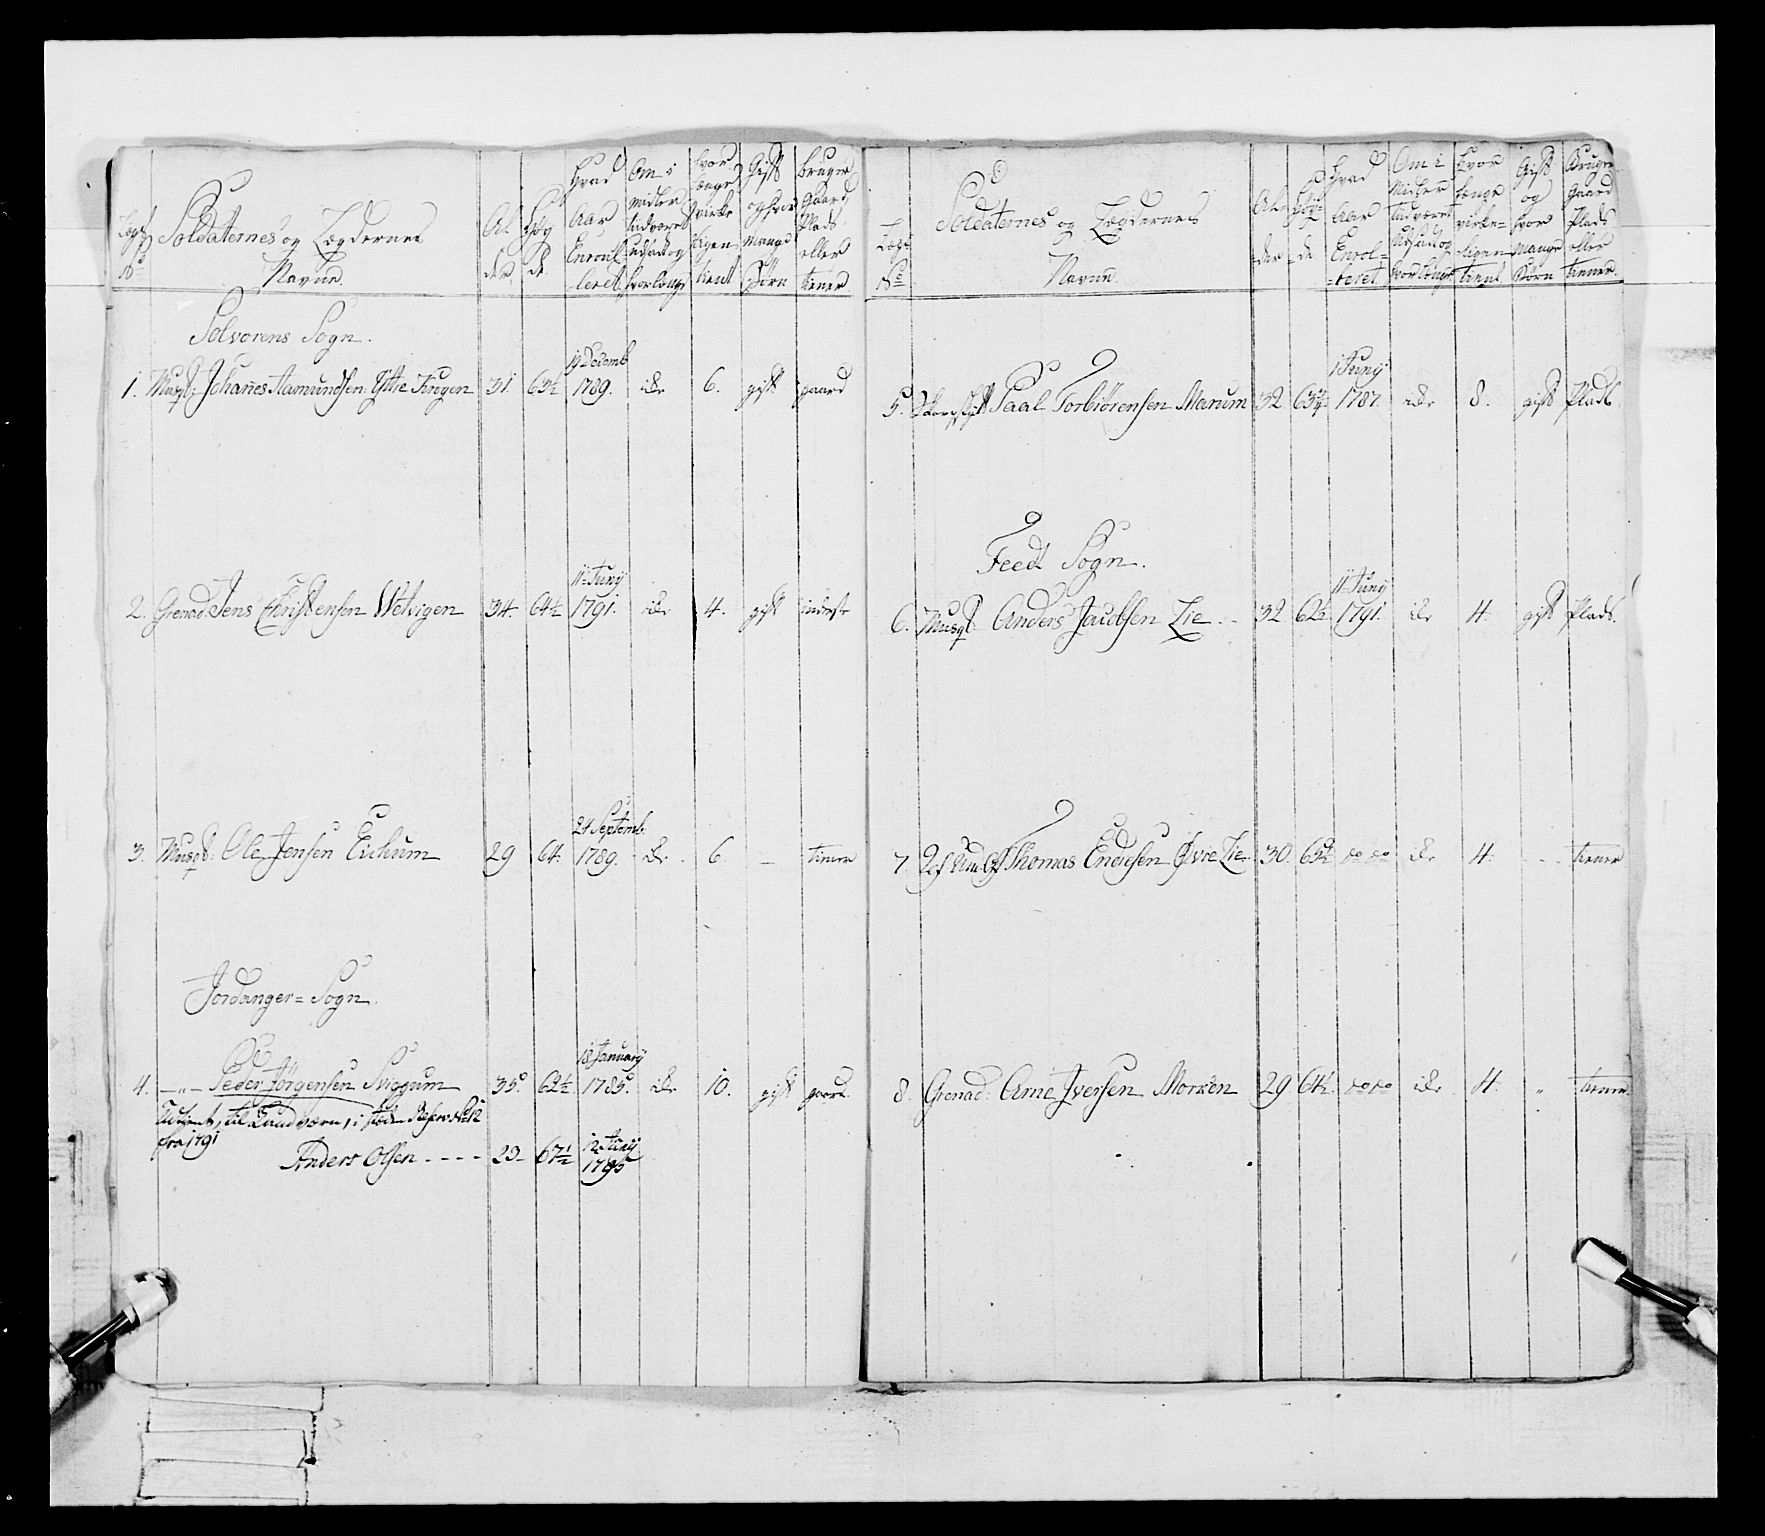 Lægd No
Soldaternes og Lægdernes Navne
Alder
Høyde
Hvad Aar Enroulleret
Om i midlertid været udsadt og hvorlænge
hvor længe virkeligen tient
Gift og hvor mange Børn
bruger Gaard Plads eller tiener
Solvorens Sogn.
1. Musqt: Johanes Aamundsen Yttre 31 63½ 19 Decemb 1789. ide 6. gift gaard
2. Grenad: Jens Christensen Wetvigen 34. 64½ 11te Juny 1791. ide 4. gift inderst
3. Musqt: Ole Jensen Eichum 29 64. 24 Septemb. 1789. ide 6. — tiener
Jordanger= Sogn.
4. —„— Peder Jørgensen Sviggum 35 62½ 18 January 1785. ide 10. gift gaard
Udtient, til Landværn, i stæden Reserve No 12
fra 1791
Anders Olsen - - - - 29- 67½ 12 Juny 1795
Lægd No
Soldaternes og Lægdernes Navne.
Alder
Høyde
Hvad Aar Enrolleret
Om i Midlertid været Udsadt og hvorlænge
Hvor længe virkeligen tient
Gift og hvor Mange Børn
Bruger Gaard Plads eller tiener
5. Paal Torbiørensen Marum 32 63¾ 1 Juny 1787. ide 8. gift Plads
Feedt Sogn.
6. Musqt: Anders Jacobsen Lie - - 32 62½ 11te Juny 1791. ide 4. gift Plads.
7. Thomas Endresen Øvre Lie 30. 65½ do do ide 4. - - tiener
8. Grenad: Arne Iversen Morken 29 64½ do do ide 4. „ tiener